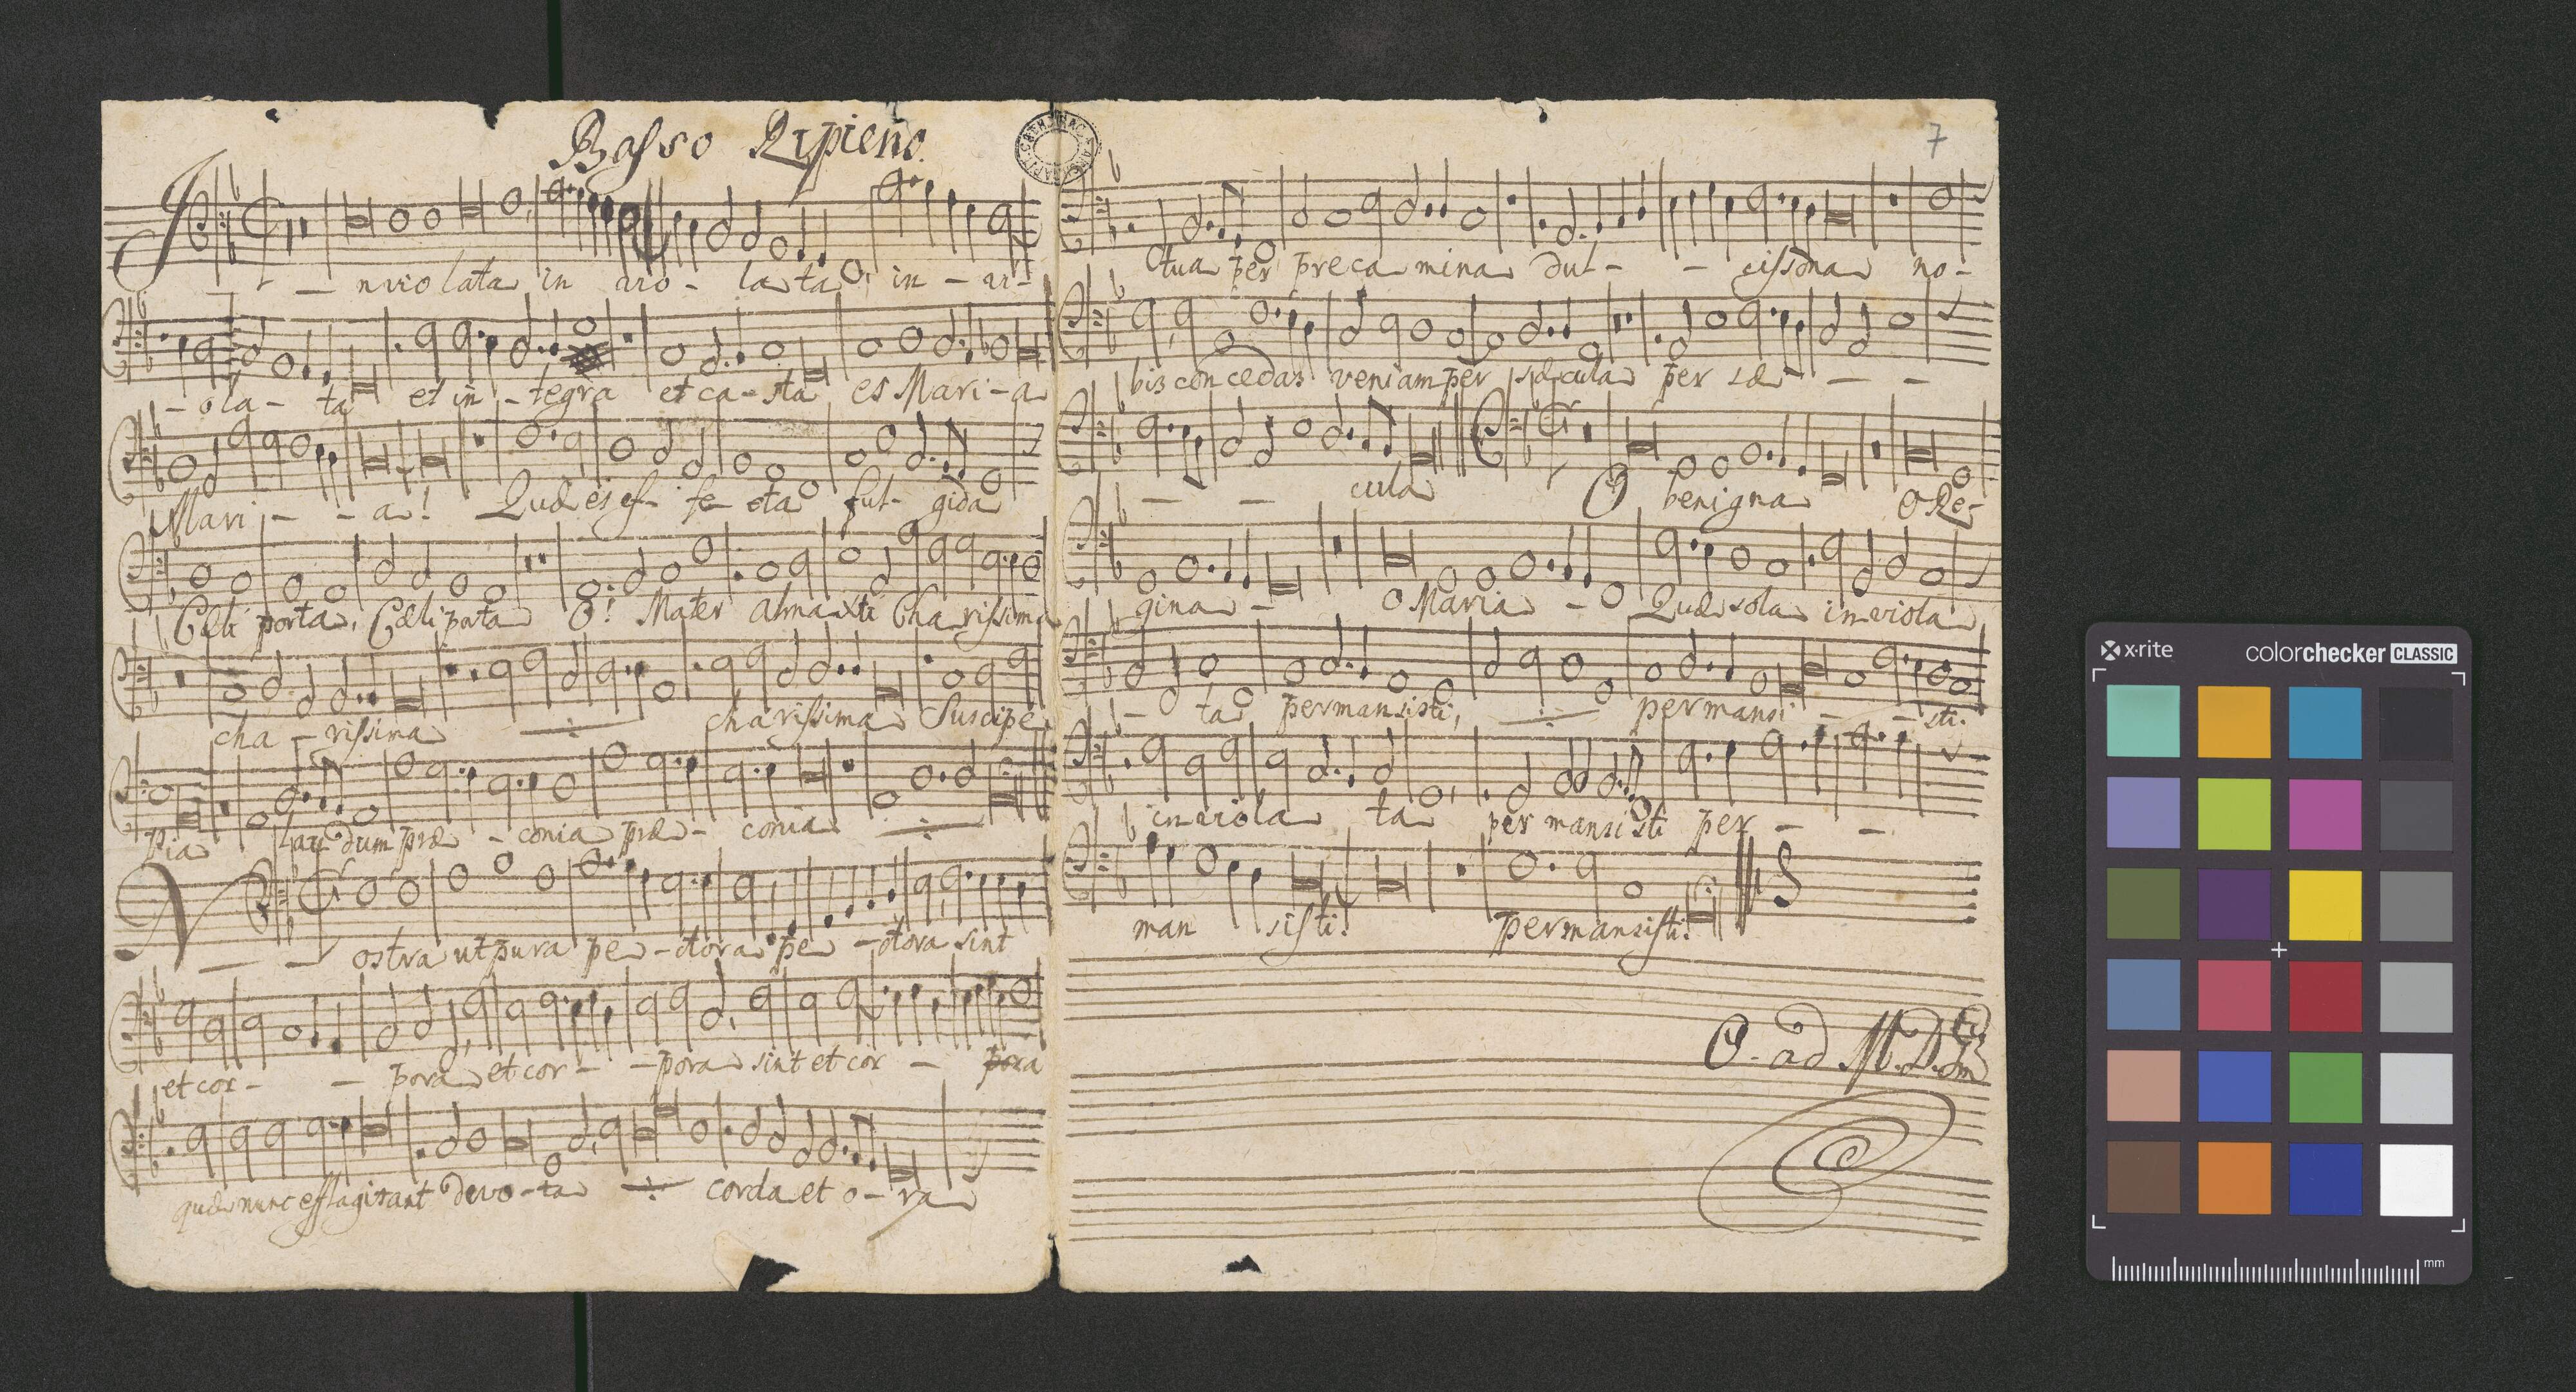 Basso Ripieno.
I - nviolata in vio - lata, in - vi -
- ola - ta et in - tegra et ca - sta es Mari - a
Mari - - a! Quæ es ef - fe cta ful - gida
Cæli porta, Cæli porta O! Mater alma Xti Charissima
cha - rissima charissima Suscipe
Pia Lau dum præ - conia præ - conia
Nostra ut pura pe - ctora pe - ctora sint
et cor - - pora et cor - - pora sint et cor - pora
quæ nunc efflagitant devo - ta corda et o - ra
7
tua per precamina dul - - cissona no -
bis concedas veniam per sæcula per sæ - - -
- - cula O benigna O Re -
gina - O Maria - Quæ sola inviola
- ta permansisti, permansi - - sti.
inviola ta permansisti per - -
man sisti! permansisti!
O. ad M. D.
x-rite colorchecker CLASSIC
mm